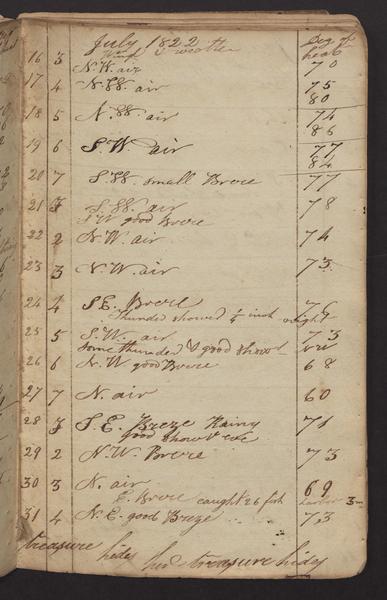 July 1822
Wind & weather
Deg of
heat
16 3 N.W. air 70
17 4 N.W. air 75
80
18 5 N.W. air 74
86
19 6 S.W. air 77
84
20 7 S.W. small Breze 77
21 S.W. air 78
S.W good Breze
22 2 N.W. air 74
23 3 N.W. air 73
24 4 S.E. Breze 76
thunder showed 1/4 inch
25 5 S.W. air 73
some thunder & good showd
26 6 N.W good Breze 68
27 7 N. air 60
28 S.E. Breze Rainy 71
good show eve
29 2 N.W. Breze 73
30 3 N. air 69
E. Breze caught 26 fish
31 4 N.E. good Breze 73
treasure hides her treasure hides